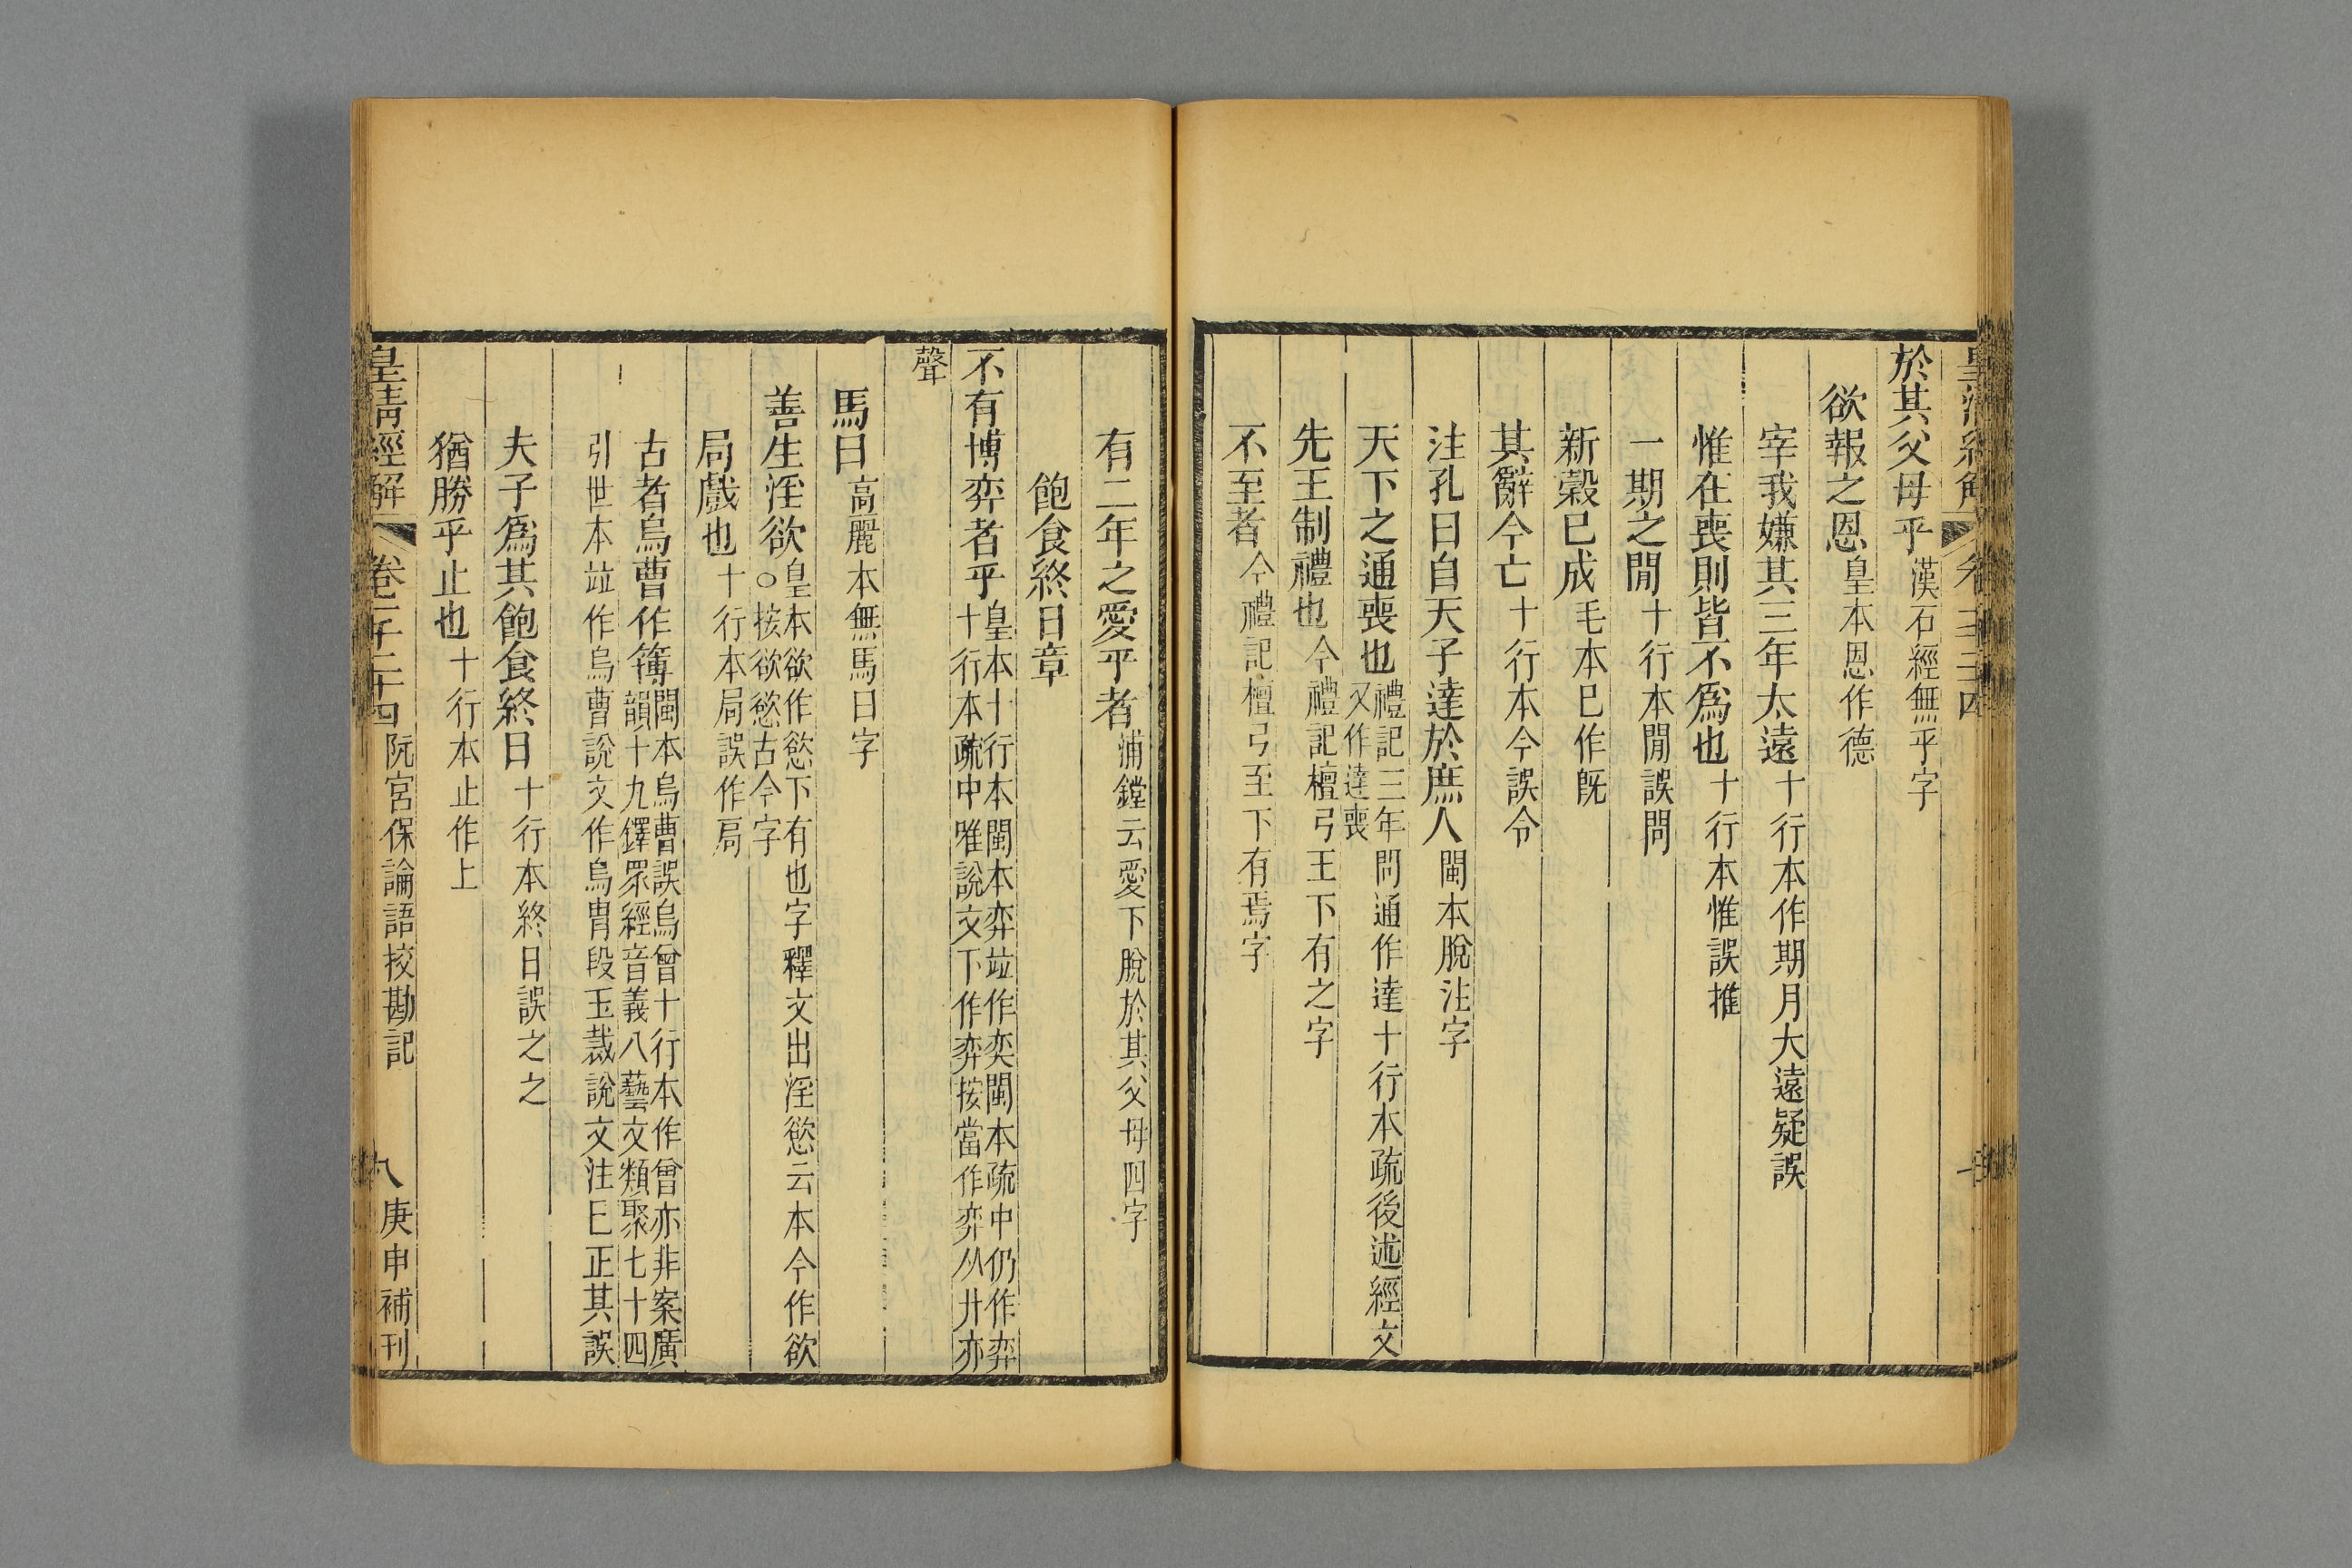 於其父母乎漢石經無乎字
欲報之恩皇本恩作德
宰我嫌其三年太遠十行本作期月大遠疑誤
惟在喪則皆不爲也十行本惟誤推
一期之閒十行本閒誤問
新穀已成毛本已作旣
其辭今亡十行本今誤令
注孔曰自天子達於庶人閩本脫注字
天下之通喪也禮記三年問通作達十行本疏後述經文又作達喪
先王制禮也今禮記檀弓王下有之字
不至者今禮記檀弓至下有焉字
有二年之愛乎者浦鏜云愛下脫於其父母四字
飽食終日章
不有博弈者乎皇本十行本閩本弈竝作奕閩本疏中仍作弈十行本疏中唯說文下作弈按當作弈从廾亦
聲
馬曰高麗本無馬曰字
善生淫欲皇本欲作慾下有也字釋文出淫慾云本今作欲○按欲慾古今字
局戲也十行本局誤作㞐
古者烏曹作簙閩本烏曹誤烏曾十行本作曾亦非案廣韻十九鐸眾經音義八藝文類聚七十四
引世本竝作烏曹說文作烏冑段玉裁說文注已正其誤
夫子爲其飽食終日十行本終日誤之之
猶勝乎止也十行本止作上
皇淸經解 卷一千二十四 阮宮保論語挍勘記 八 庚申補刊